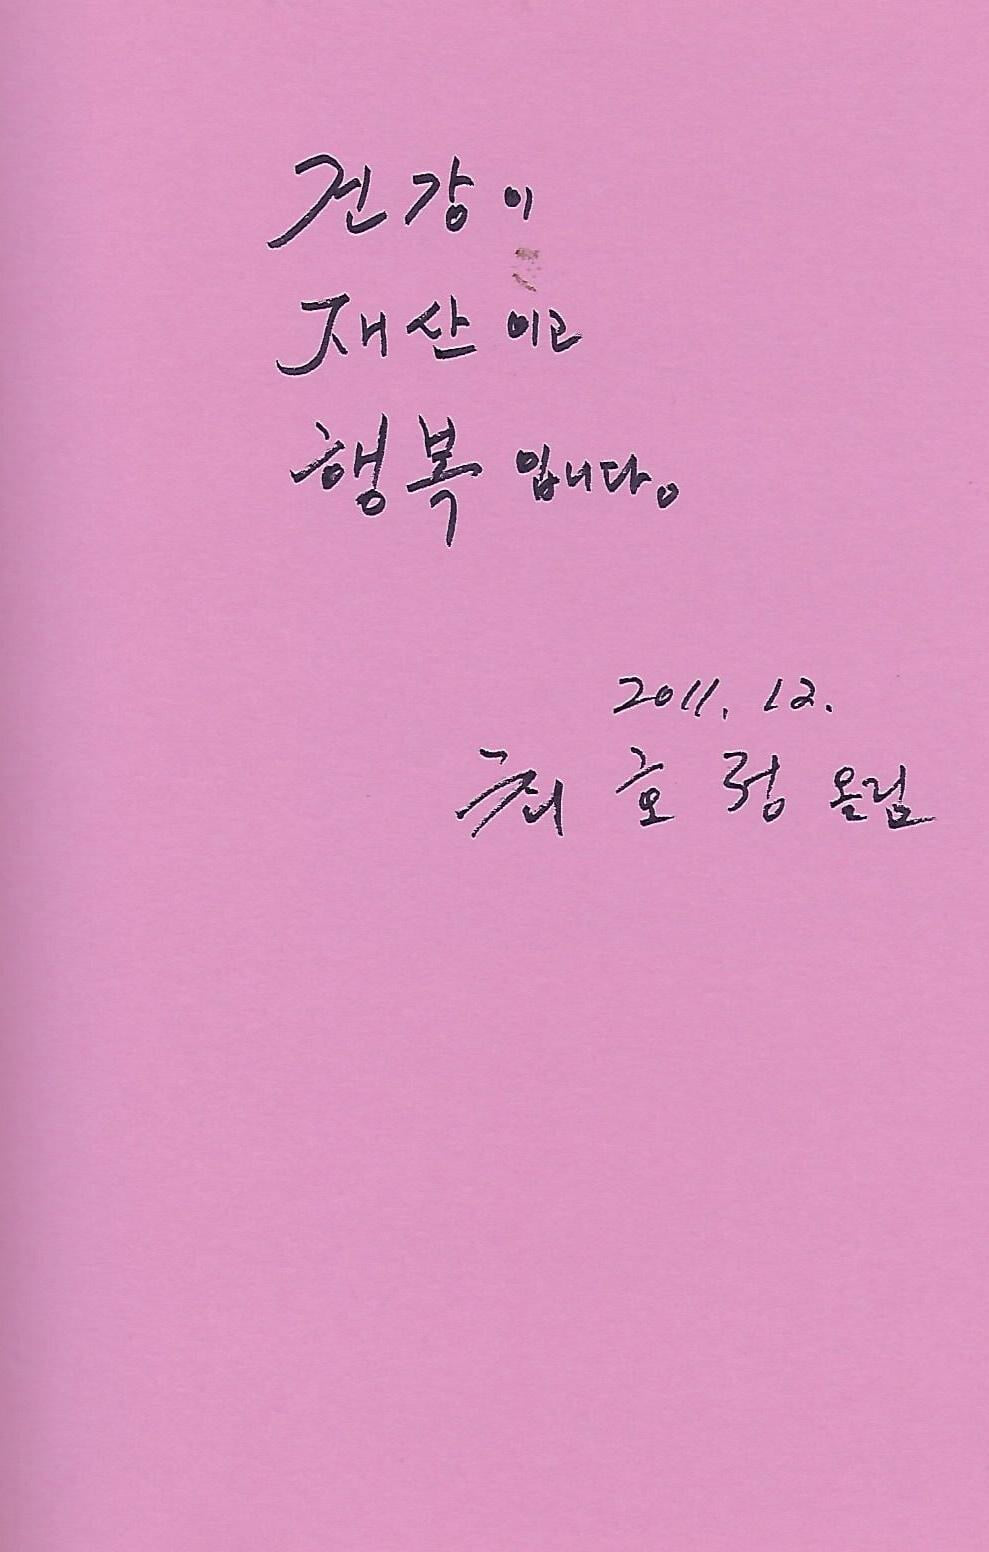 건강이
재산이고
행복입니다.
2011. 12.
최호정 올림